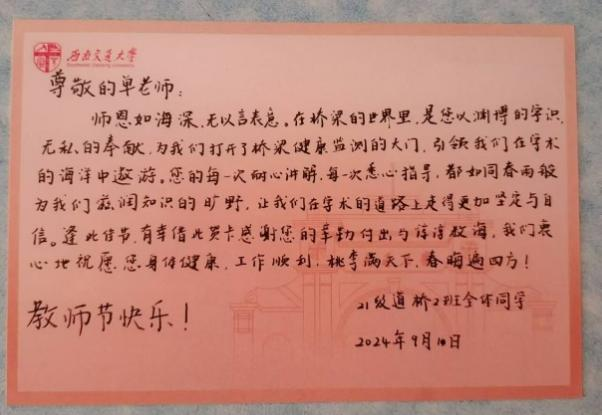 西南交通大学
Southwest Jiaotong University
尊敬的单老师:
师恩如海深,无以言表意。在桥梁的世界里,是您以渊博的学识,
无私的奉献,为我们打开了桥梁健康监测的大门,引领我们在学术
的海洋中遨游。您的每一次耐心讲解,每一次悉心指导,都如同春雨般
为我们滋润知识的旷野,让我们在学术的道路上走得更加坚定与自
信。逢此佳节,有幸借此贺卡感谢您的辛勤付出与谆谆教诲,我们衷
心地祝愿您身体健康,工作顺利,桃李满天下,春晖遍四方!
教师节快乐!
21级道桥2班全体同学
2024年9月10日